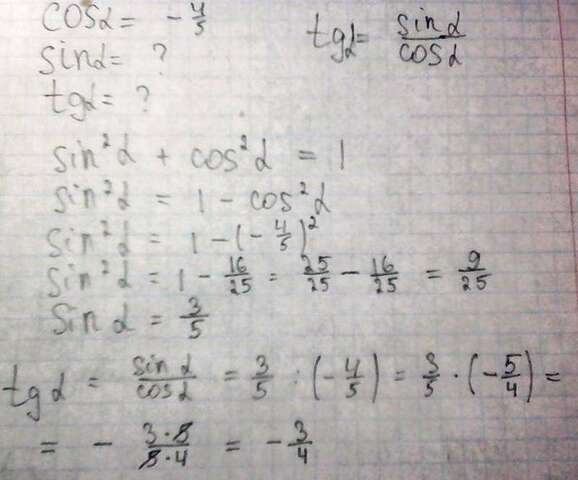 cosα = -4/5
tgα = sinα/cosα
sinα = ?
tgα = ?
sin²α + cos²α = 1
sin²α = 1 - cos²α
sin²α = 1 - (-4/5)²
sin²α = 1 - 16/25 = 25/25 - 16/25 = 9/25
sin α = 3/5
tg α = sin α/cosα = 3/5 : (-4/5) = 3/5 · (-5/4) =
= - 3·5/5·4 = -3/4